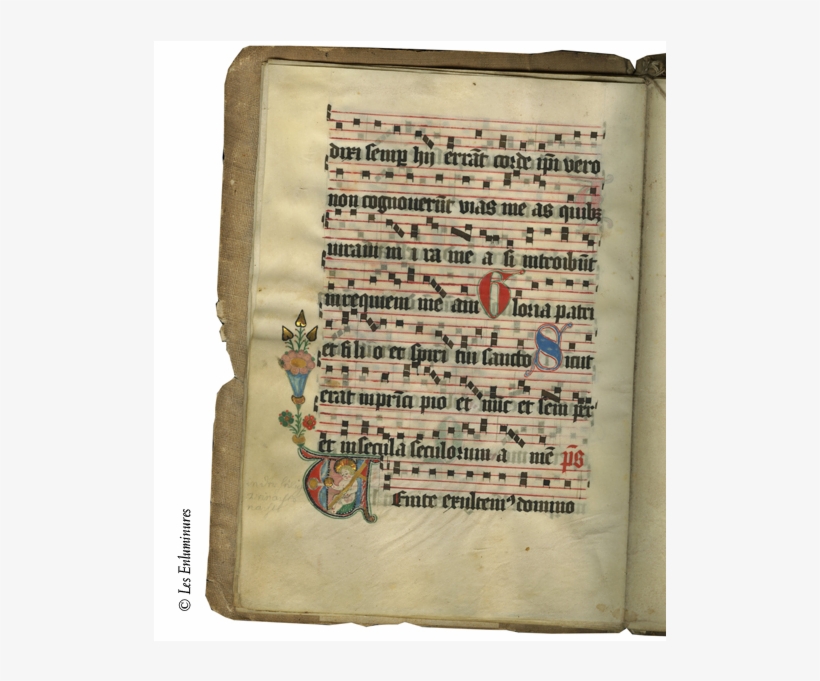 dixi semp hij errāt corde ipi vero
non cognoverūt vias me as quibꝫ
iuravi in i ra me a si introibūt
in requiem me am Gloria patri
et fili o et spiri tui sancto Sicut
erat in prīci pio et nūc et semper
et in secula seculorum a mē p̄s
Enite exultemꝰ domino
© Les Enluminures